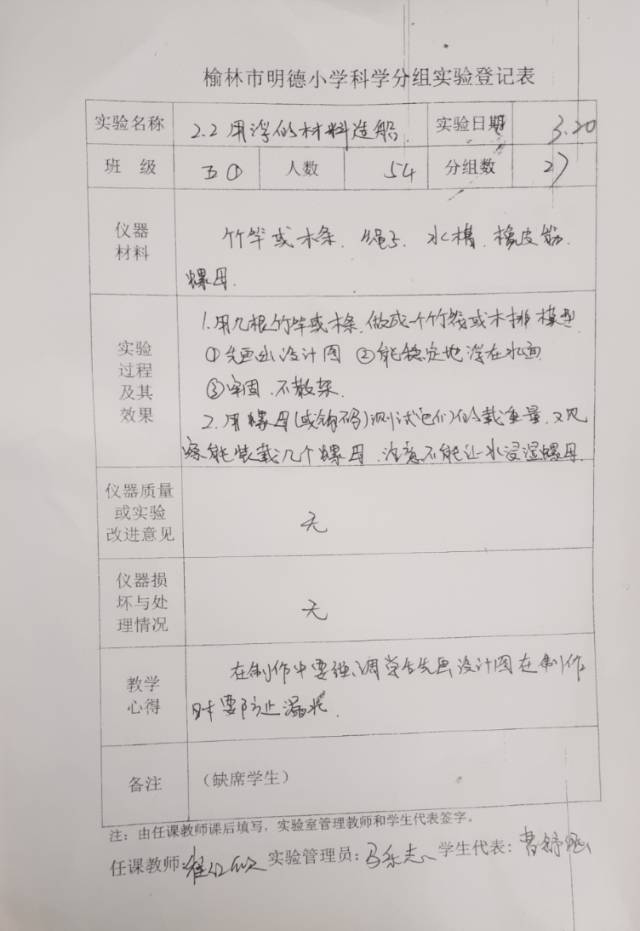 榆林市明德小学科学分组实验登记表
实验名称 2.2用浮的材料造船 实验日期 3.20
班 级 五① 人数 54 分组数 27
仪器材料 竹竿或木条、绳子、水槽、橡皮筋、
螺母.
实验过程及其效果 1.用几根竹竿或木条,做成一个竹筏或木排模型
①先画出设计图 ②能稳定地浮在水面
③牢固.不散架.
2.用螺母(或钩码)测试它们的载重量,观
察能装载几个螺母,注意不能让水浸湿螺母.
仪器质量或实验改进意见 无
仪器损坏与处理情况 无
教学心得 在制作中要强调学生先画设计图在制作
时要防止漏水.
备注 (缺席学生)
注:由任课教师课后填写,实验室管理教师和学生代表签字。
任课教师: 实验管理员: 学生代表: